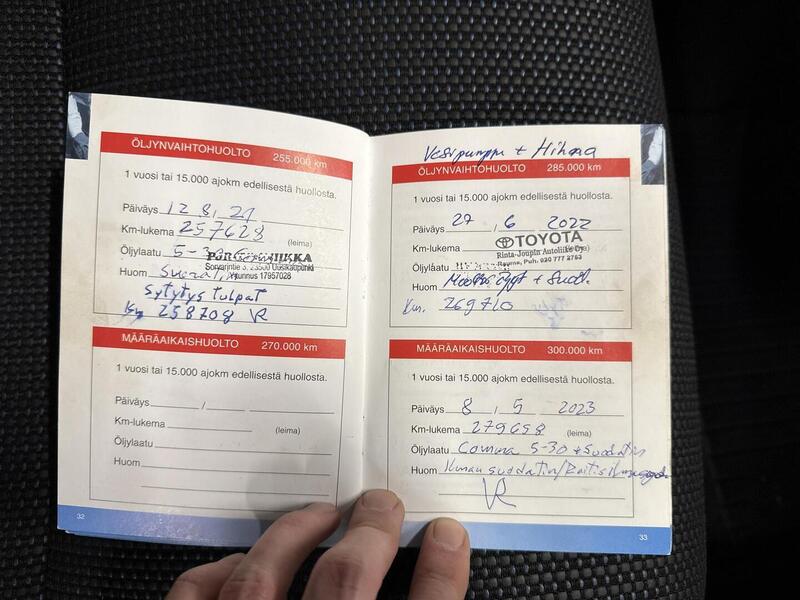 ÖLJYNVAIHTOHUOLTO 255.000 km
1 vuosi tai 15.000 ajokm edellisestä huollosta.
Päiväys 12 8, 21
Km-lukema 257628
(leima)
Öljylaatu 5-30
Sorvarintie 3, 23500 Uusikaupunki
17957028
Huom
Sytytys tulpat
Km 258708 VR
MÄÄRÄAIKAISHUOLTO 270.000 km
1 vuosi tai 15.000 ajokm edellisestä huollosta.
Päiväys / 
Km-lukema
(leima)
Öljylaatu
Huom
32
Vesipumppu + Hihna
ÖLJYNVAIHTOHUOLTO 285.000 km
1 vuosi tai 15.000 ajokm edellisestä huollosta.
Päiväys 27 , 6 2022
Km-lukema
TOYOTA
Rinta-Joupin Autoliike Oy
Rauma, Puh. 020 777 2763
Öljylaatu
Huom Moottoriöljyt + Suod.
Km. 269710
MÄÄRÄAIKAISHUOLTO 300.000 km
1 vuosi tai 15.000 ajokm edellisestä huollosta.
Päiväys 8 , 5 2023
Km-lukema 279658
(leima)
Öljylaatu Comma 5-30 + Suodatin
Huom Ilman suodatin/Raitis
VR
33